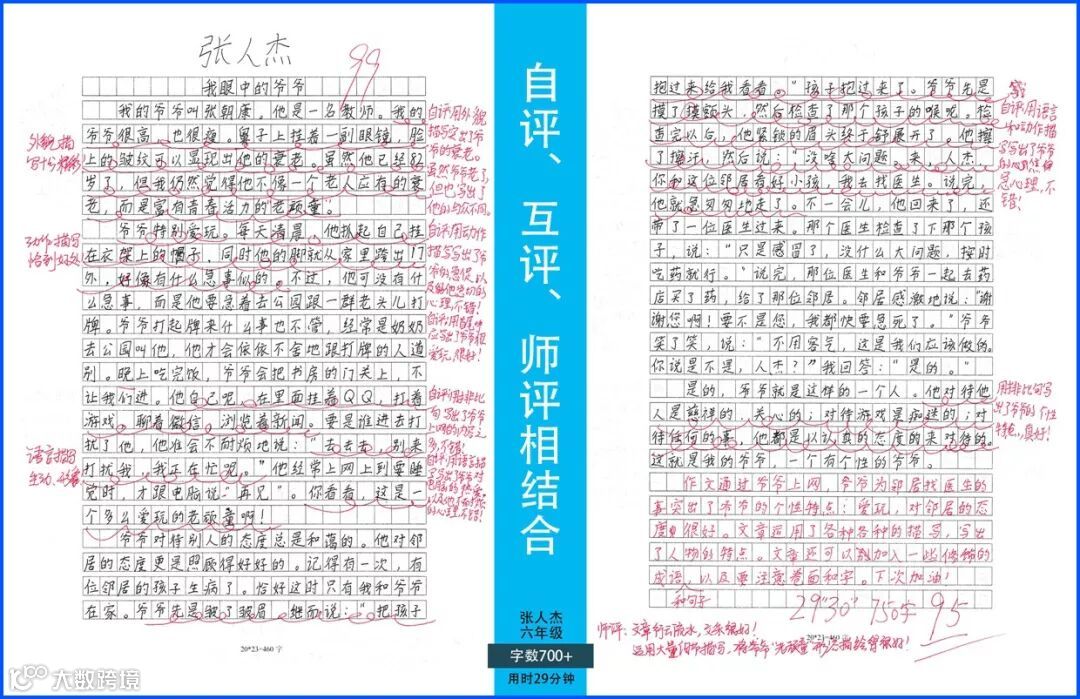 张人杰
99
我眼中的爷爷
我的爷爷叫张朝康。他是一名教师。我的
爷爷很高，也很瘦。鼻子上挂着一副眼镜，脸
上的皱纹可以显现出他的衰老。虽然他已经82
岁了，但我仍然觉得他不像一个老人应有的衰
老，而是富有青春活力的“老顽童”。
爷爷特别爱玩。每天清晨，他抓起自己挂
在衣架上的帽子，同时他的脚就从家里跨出门
外，好像有什么急事似的。不过，他可没有什
么急事，而是他要急着去公园跟一群老头儿打
牌。爷爷打起牌来什么事也不管，经常是奶奶
去公园叫他，他才会依依不舍地跟打牌的人道
别。晚上吃完饭，爷爷会把书房的门关上，不
让我们进。他自己呢，在里面挂着QQ，打着
游戏。聊着微信。浏览着新闻。要是谁进去打
扰了他，他准会不耐烦地说：“去去去，别来
打扰我，我正在忙呢。”他经常上网上到要睡
觉时，才跟电脑说“再见”。你看看，这是一
个多么爱玩的老顽童啊！
爷爷对待别人的态度总是和蔼的。他对邻
居的态度更是照顾得好好的。记得有一次，有
位邻居的孩子生病了，恰好这时只有我和爷爷
在家。爷爷先是皱了皱眉，继而说：“把孩子
20*23=460字
外貌描
写十分精彩
动作描写
恰到好处
语言描写
生动、形象
自评用外貌
描写突出了爷
爷的衰老。
虽然爷爷老了，
但也写出了
他的与众不同。
自评用动作
描写写出了爷
心理，不错！
自评、互评、师评相结合
张人杰
六年级
字数700+
用时29分钟
抱过来给我看看。”孩子抱过来了。爷爷先是
摸了摸额头，然后检查了那个孩子的喉咙。检
查完以后，他紧锁的眉头终于舒展开了。他擦
了擦汗，然后说：“没啥大问题。来，人杰，
你和这位邻居看好小孩，我去找医生。说完，
他就急匆匆地走了。不一会儿，他回来了，还
带了一位医生过来。那个医生检查了下那个孩
子，说：“只是感冒了，没什么大问题，按时
吃药就行。”说完，那位医生和爷爷一起去药
店买了药，给了那位邻居。邻居感激地说：“谢
谢您啊！要不是您，我都快要急死了。”爷爷
笑了笑，说：“不用客气，这是我们应该做的。
你说是不是，人杰？”我回答：“是的。”
是的，爷爷就是这样的一个人。他对待他
人是慈祥的、关心的；对待游戏是痴迷的；对
待任何的事，他都是以认真的态度的来对待的。
这就是我的爷爷，一个有个性的爷爷。
作文通过爷爷上网，爷爷为邻居找医生的
事突出了爷爷的个性特点：爱玩，对邻居的态
度很好。文章运用了各种各样的描写，写出
了人物的特点。文章还可以加入一些修饰的
成语，以及要注意卷面和字。下次加油！
和句子
29"30" 750字 95
20*23=460字
自评用语言
和动作描
写写出了爷爷
的心焦和
急心理，不
错！
用排比句写
出了爷爷的个性
特点，真好！
师评：文章行云流水，文采很好！
运用大量细节描写，将爷爷“老顽童”形象描绘得很好！
大数跨境